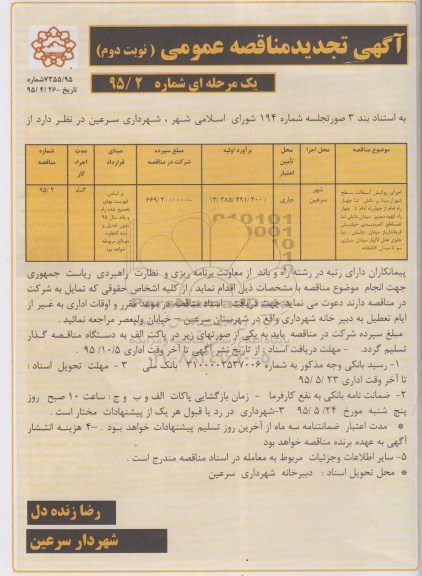 آگهی تجدیدمناقصه عمومی ( نوبت دوم)
یک مرحله ای شماره ۹۵/۲
۷۳۵۵/۹۵شماره
تاریخ -۹۵/ ۴/ ۲۶
به استناد بند ۳ صورتجلسه شماره ۱۹۴ شورای اسلامی شهر ، شهرداری سرعین در نظر دارد از
موضوع مناقصه
محل اجرا
محل تأمین اعتبار
برآورد اولیه
مبلغ سپرده شرکت در مناقصه
مبنای قرارداد
مدت اجراء کار
شماره مناقصه
اجرای روکش آسفالت سطح
شهر سرعین
جاری
۱۲/ ۳۸۵/ ۴۹۱/ ۲۰۰/
۶۶۹/ ۳۰۰/ ۰۰۰/-
بر اساس
فهرست بهای
تجمیع شده راه
و باند سال ۹۵
بدون تعدیل و
مابه التفاوت
مصالح مربوطه
خواهد بود
۳ماه
۹۵/۲
پیمانکاران دارای رتبه در رشته راه و باند از معاونت برنامه ریزی و نظارت راهبردی ریاست جمهوری
جهت انجام موضوع مناقصه با مشخصات ذیل اقدام نماید، از کلیه اشخاص حقوقی که تمایل به شرکت
در مناقصه دارند دعوت می نماید جهت دریافت اسناد مناقصه در موعد مقرر و اوقات اداری به غیر از
ایام تعطیل به دبیر خانه شهرداری واقع در شهرستان سرعین – خیابان ولیعصر مراجعه نمائید .
مبلغ سپرده شرکت در مناقصه باید به یکی از صورتهای زیر در پاکت الف به دستگاه مناقصه گذار
تسلیم گردد. - مهلت دریافت اسناد : از تاریخ نشر آگهی تا آخر وقت اداری ۹۵ .۱۰/۵
۱- رسید بانکی وجه مذکور به شماره ۳۱۰۰۰۰۲۵۳۷۰۰۶ بانک ملی ۳ - مهلت تحویل اسناد :
تا آخر وقت اداری ۲۳ /۵ ۹۵
۲- ضمانت نامه بانکی به نفع کارفرما - زمان بازگشایی پاکات الف و ب و ج : ساعت ۱۰ صبح روز
پنج شنبه مورخ ۲۴/ ۵ /۹۵ ۳-شهرداری در رد یا قبول هر یک از پیشنهادات مختار است .
* مدت اعتبار ضمانتنامه سه ماه از آخرین روز تسلیم پیشنهادات خواهد بود . -۴ هزینه انتشار
آگهی به عهده برنده مناقصه خواهد بود
۵- سایر اطلاعات وجزئیات مربوط به معامله در اسناد مناقصه مندرج است .
* محل تحویل اسناد : دبیرخانه شهرداری سرعین
رضا زنده دل
شهردار سرعین